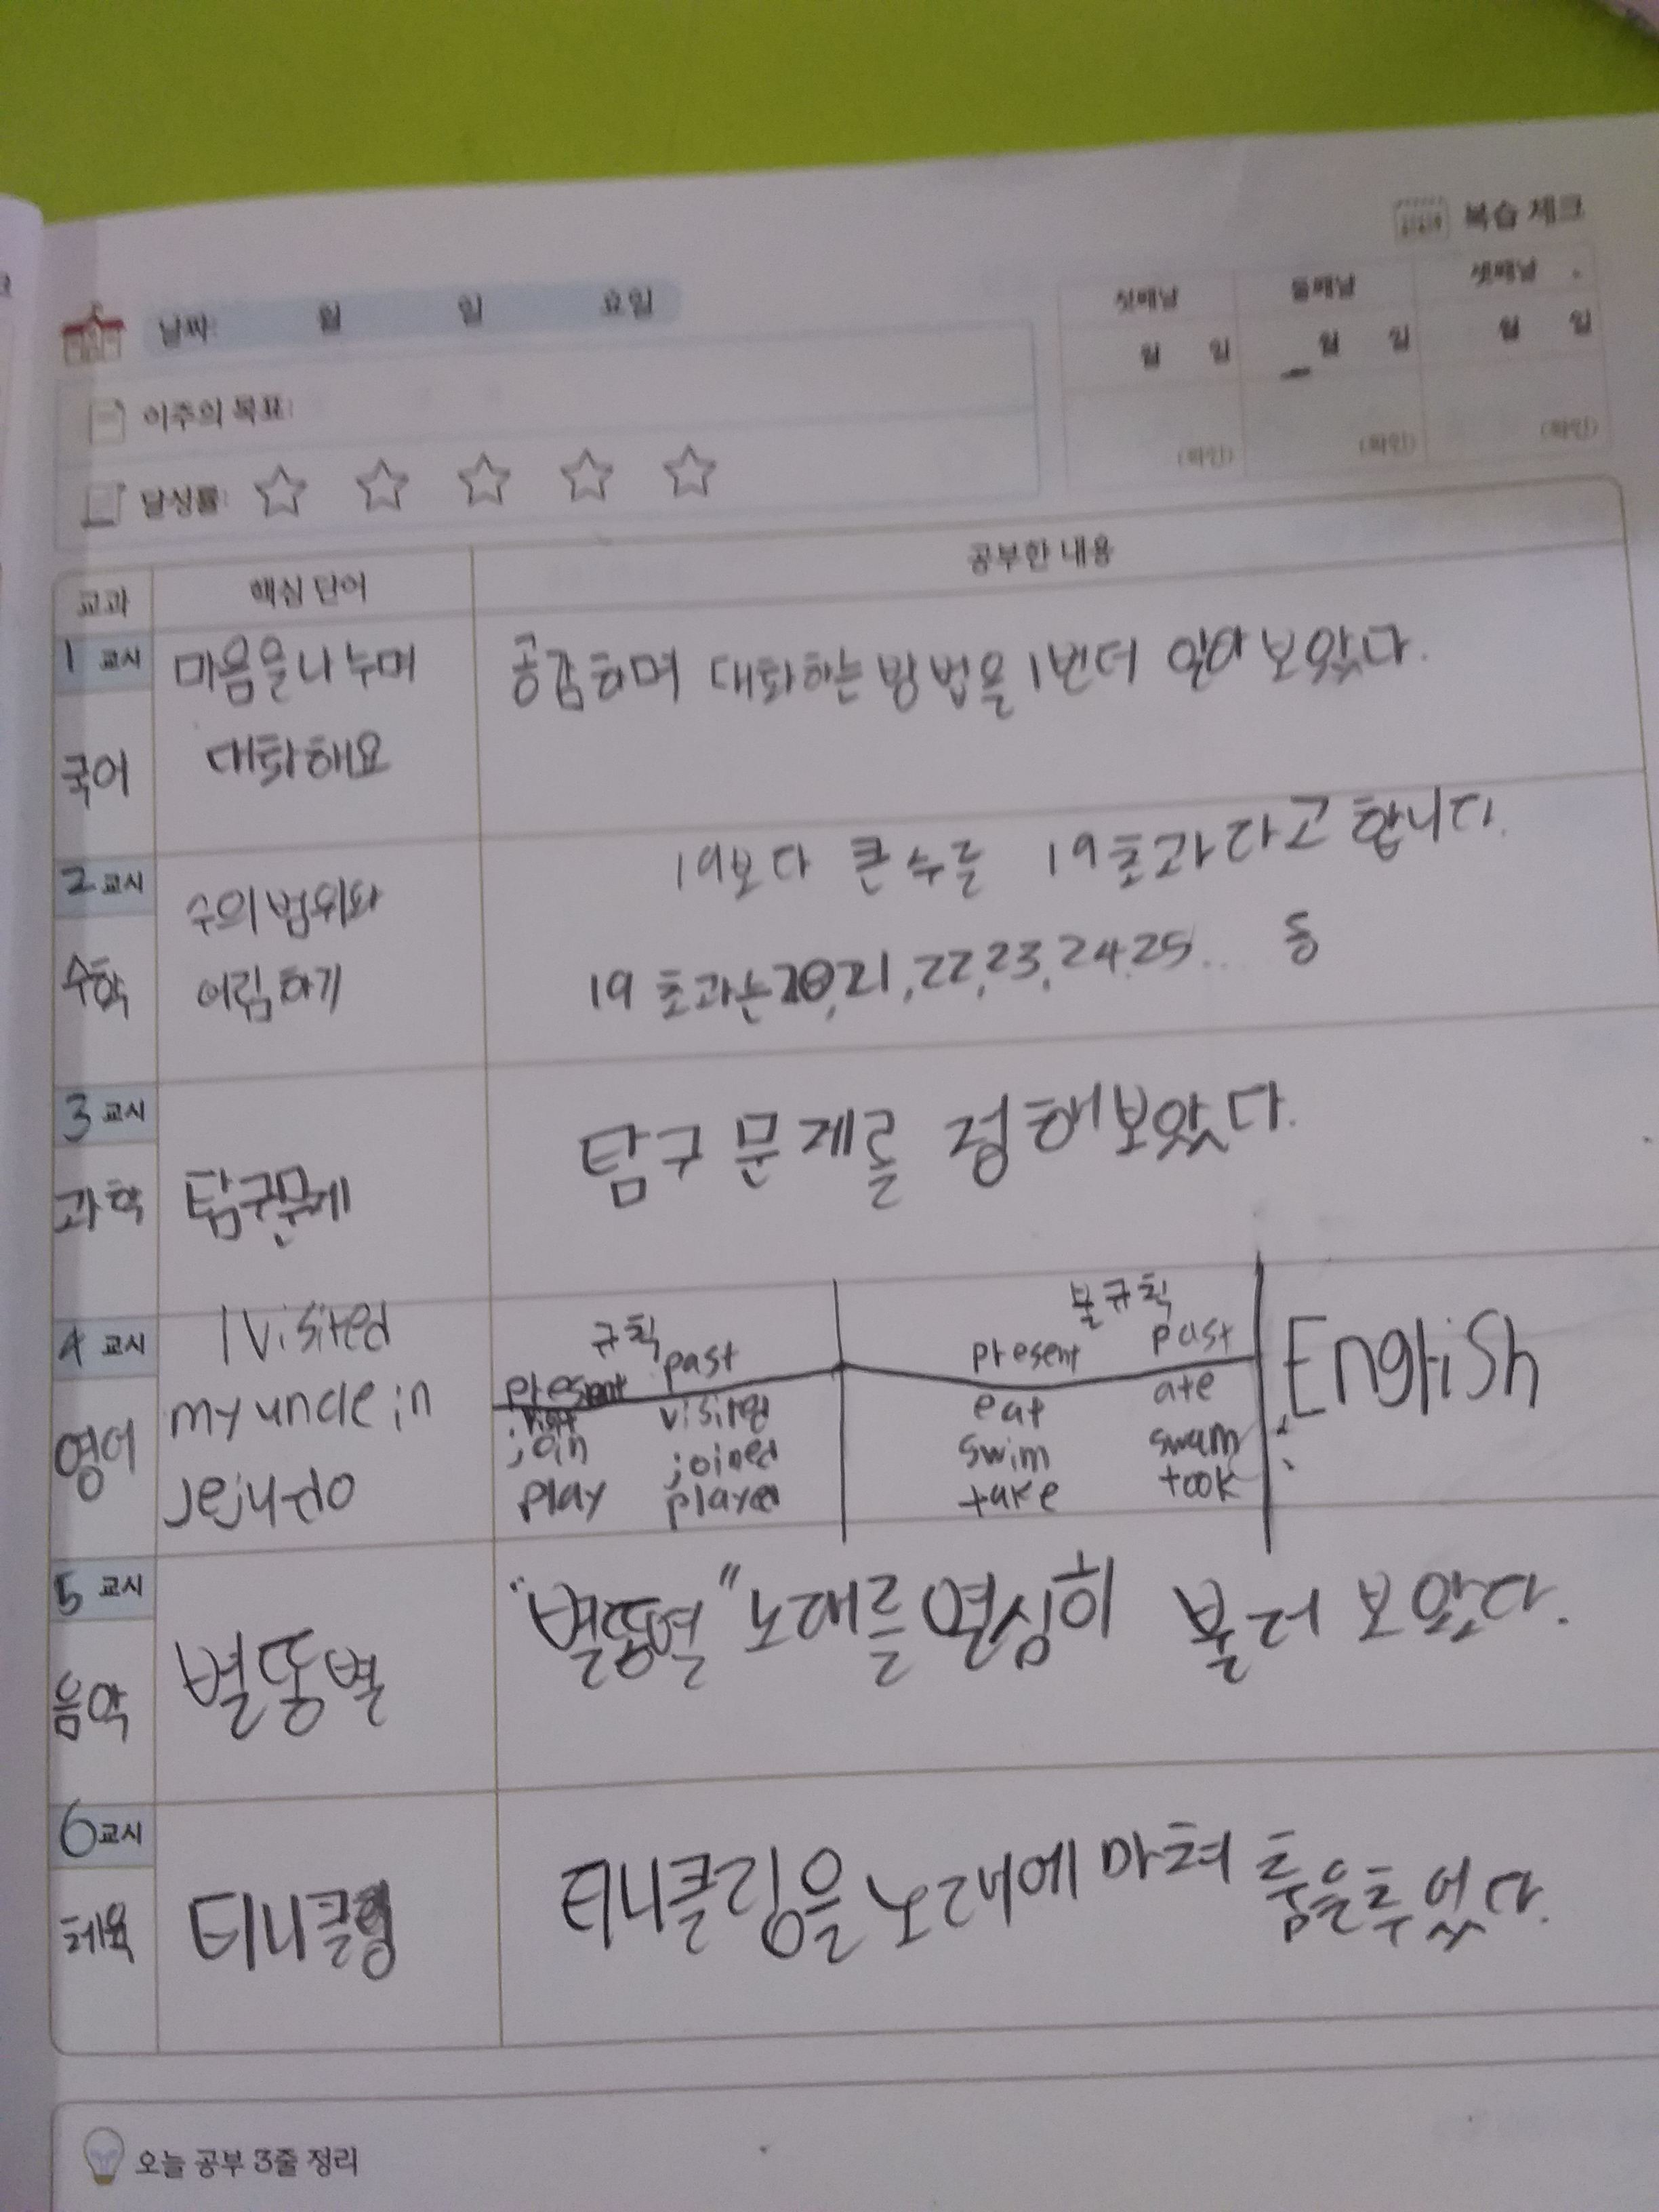 복습 체크
날짜: 월 일 요일
첫째날 둘째날 셋째날
월 일 월 일 월 일
이주의 목표:
(확인) (확인) (확인)
달성률:
교과 핵심 단어 공부한 내용
1 교시 마음을 나누며 공감하며 대화하는 방법을 1번더 알아 보았다.
국어 대화해요
2 교시 수의 범위와 19보다 큰 수를 19초과라고 합니다.
수학 어림하기 19 초과는 20, 21, 22, 23, 24, 25... 등
3 교시 탐구 문제를 정해보았다.
과학 탐구문제
4 교시 I visited 규칙 불규칙
present past present past English
영어 my uncle in visit visited eat ate
join joined swim swam
jeju-do play played take took
5 교시 "별똥별" 노래를 열심히 불러 보았다.
음악 별똥별
6 교시 티니클링을 노래에 마쳐 춤을추었다.
체육 티니클링
오늘 공부 3줄 정리